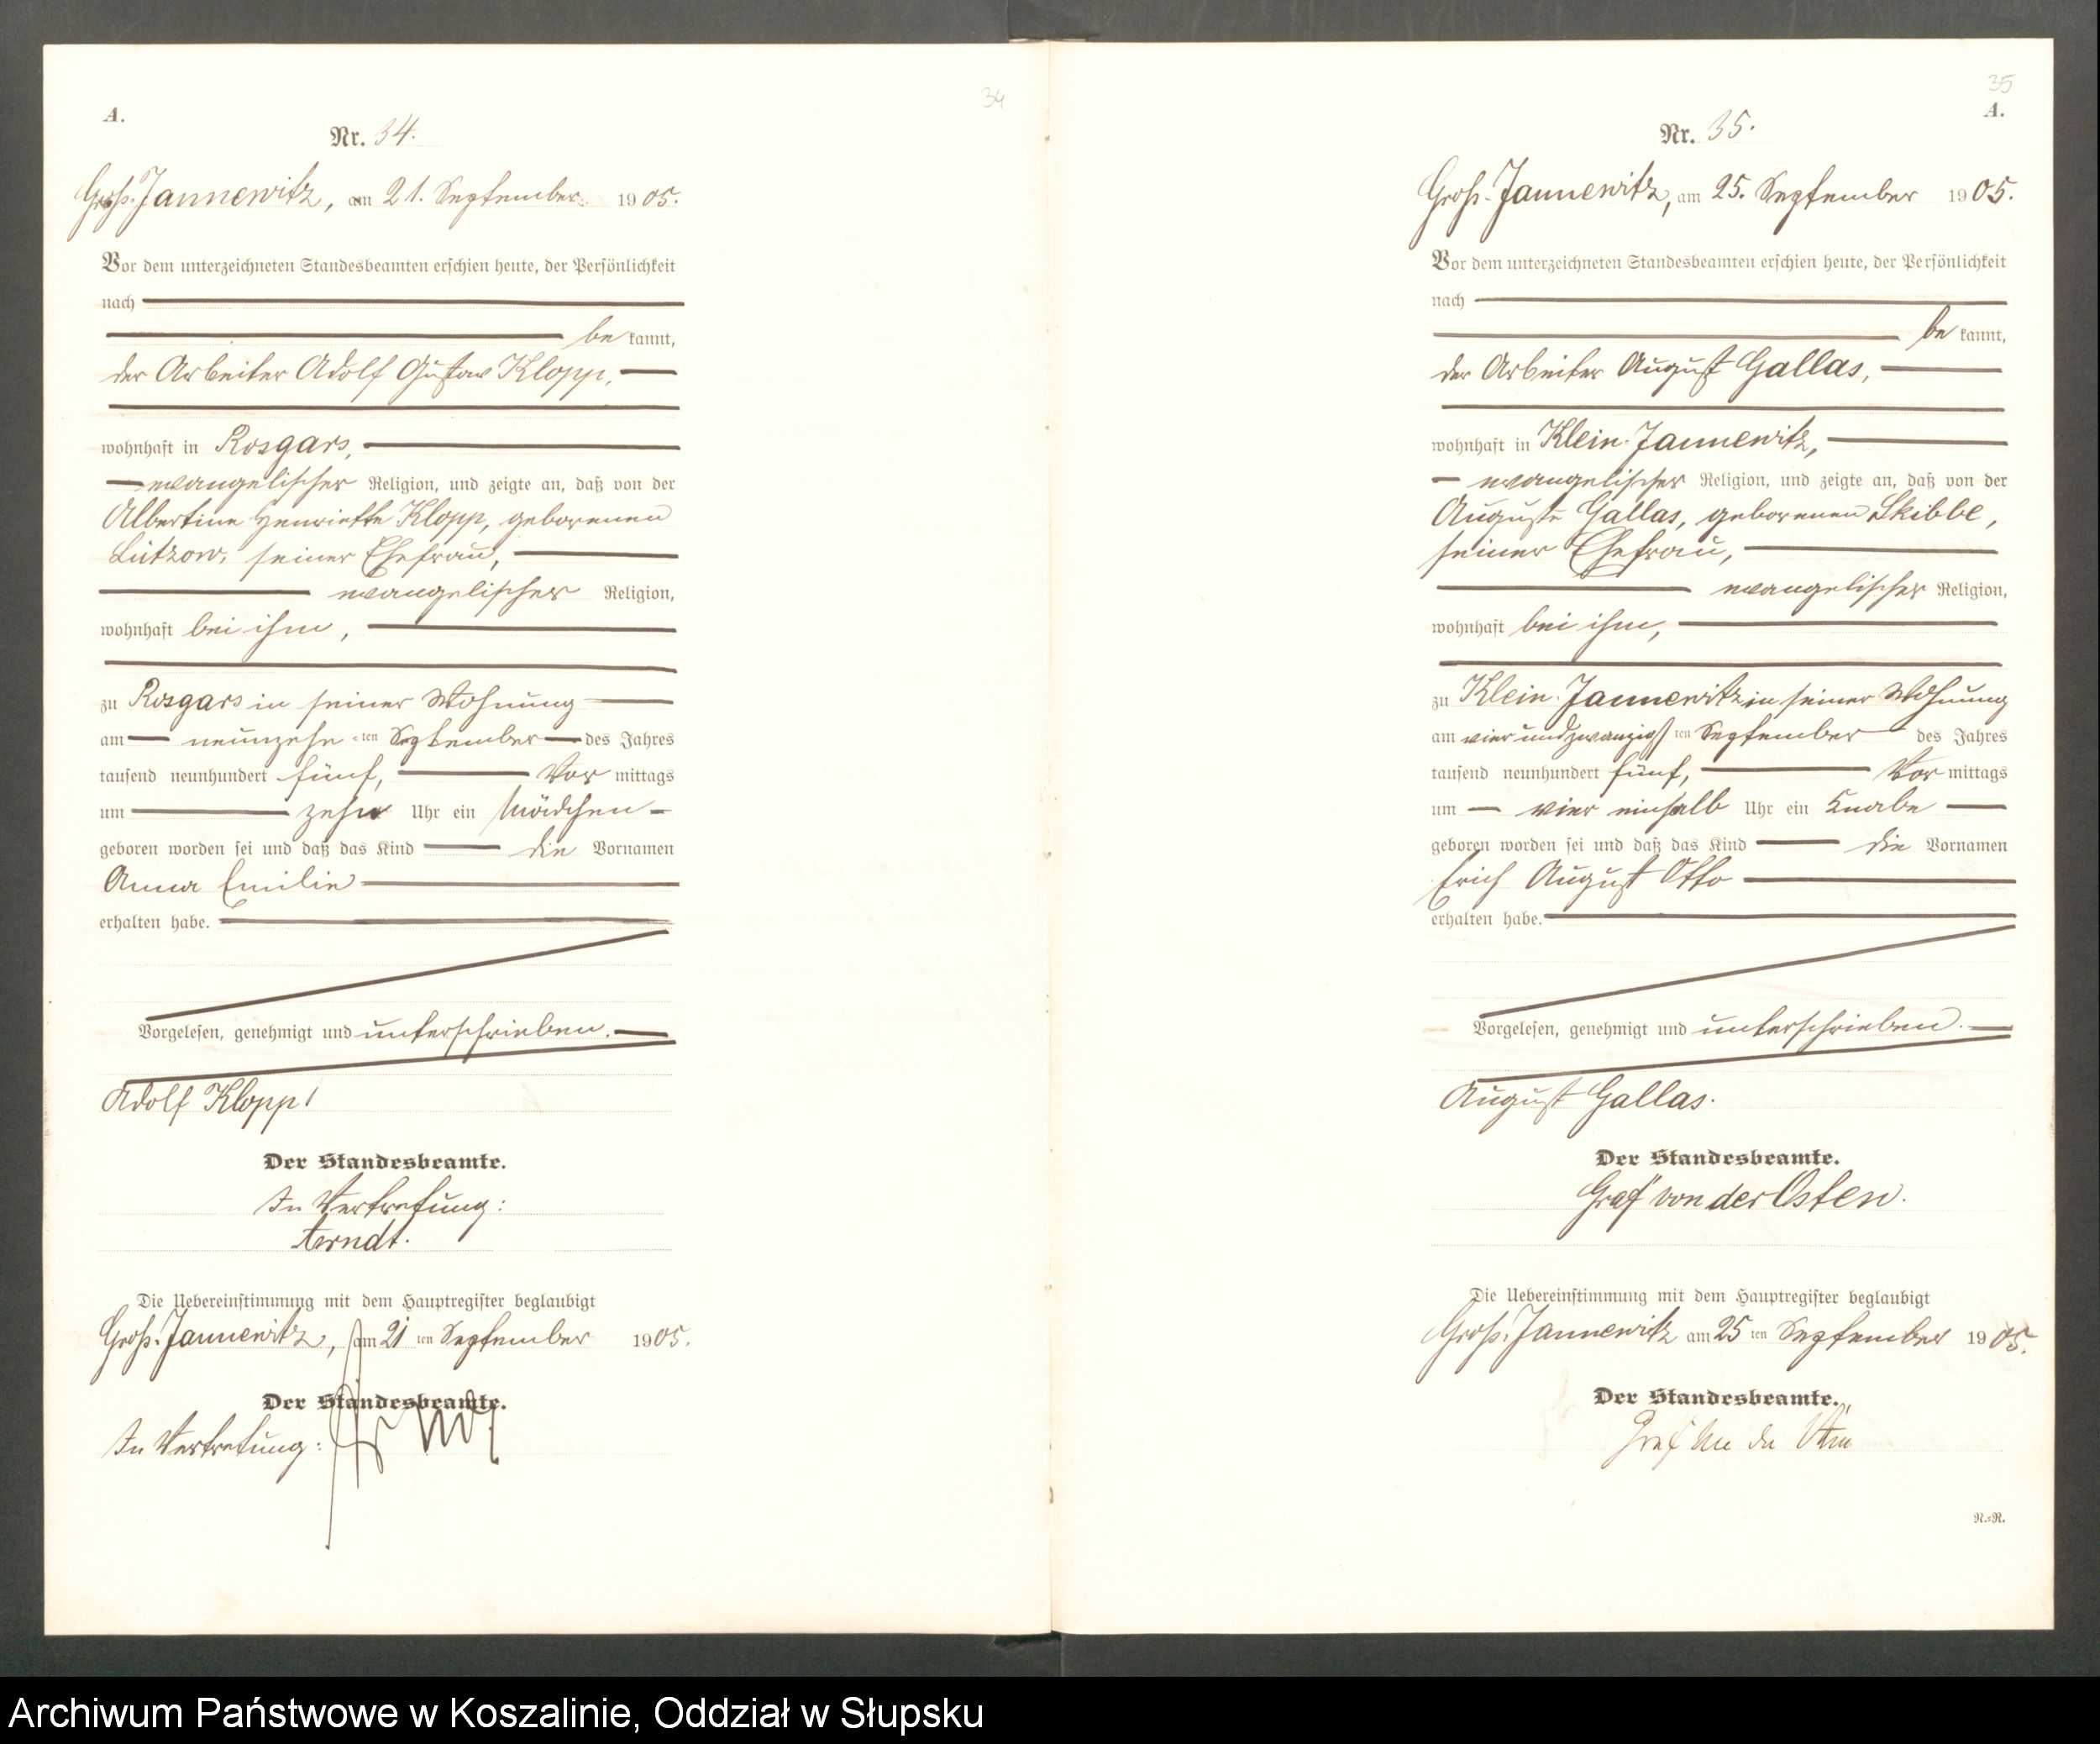 34
A.
Nr. 34.
Groß-Jannewitz, am 21. September 1905.
Vor dem unterzeichneten Standesbeamten erschien heute, der Persönlichkeit
nach
be kannt,
der Arbeiter Adolf Gustav Klopp,
wohnhaft in Rosgars,
evangelischer Religion, und zeigte an, daß von der
Albertine Henriette Klopp, geborenen
Lützow, seiner Ehefrau,
evangelischer Religion,
wohnhaft bei ihm,
zu Rosgars in seiner Wohnung
am neunzehn ten September des Jahres
tausend neunhundert fünf, Vor mittags
um zehn Uhr ein Mädchen
geboren worden sei und daß das Kind die Vornamen
Anna Emilie
erhalten habe.
Vorgelesen, genehmigt und unterschrieben.
Adolf Klopp
Der Standesbeamte.
In Vertretung:
Arndt.
Die Uebereinstimmung mit dem Hauptregister beglaubigt
Groß-Jannewitz, am 21 ten September 1905.
Der Standesbeamte.
In Vertretung: Arndt
35
A.
Nr. 35.
Groß-Jannewitz, am 25. September 1905.
Vor dem unterzeichneten Standesbeamten erschien heute, der Persönlichkeit
nach
be kannt,
der Arbeiter August Gallas,
wohnhaft in Klein-Jannewitz,
evangelischer Religion, und zeigte an, daß von der
Auguste Gallas, geborenen Skibbe,
seiner Ehefrau,
evangelischer Religion,
wohnhaft bei ihm,
zu Klein-Jannewitz in seiner Wohnung
am vierundzwanzigst ten September des Jahres
tausend neunhundert fünf, Vor mittags
um vier einhalb Uhr ein Knabe
geboren worden sei und daß das Kind die Vornamen
Erich August Otto
erhalten habe.
Vorgelesen, genehmigt und unterschrieben.
August Gallas.
Der Standesbeamte.
Graf von der Osten.
Die Uebereinstimmung mit dem Hauptregister beglaubigt
Groß-Jannewitz am 25 ten September 1905.
Der Standesbeamte.
Graf von der Osten
N.=R.
Archiwum Państwowe w Koszalinie, Oddział w Słupsku